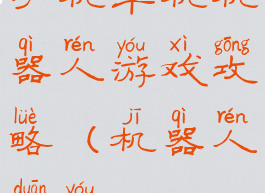 qì rén yóu xì gōng
器人游戏攻
lüè jī qì rén
略(机器人
duān yóu